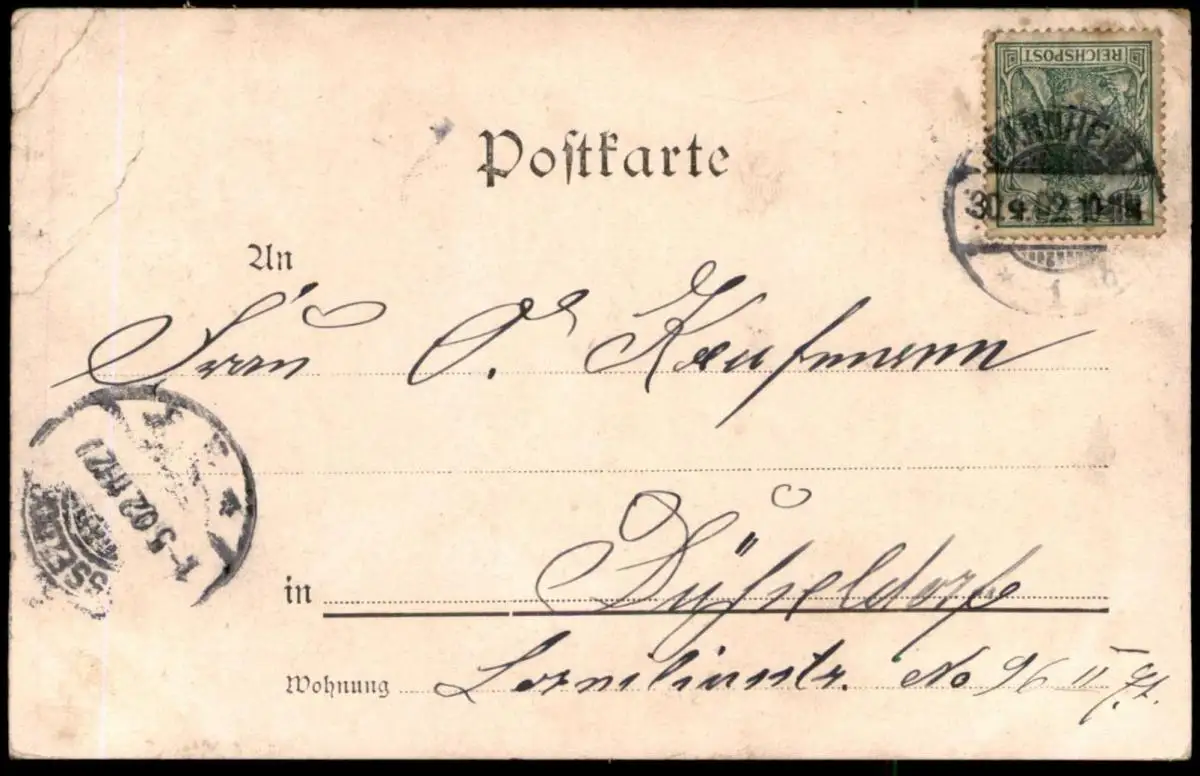 REICHSPOST
MANNHEIM
30.4.02.10-11N
1
Postkarte
An
Frau O. Kaufmann
1-5 02 11-12
in Düsseldorf
Wohnung No 96 II